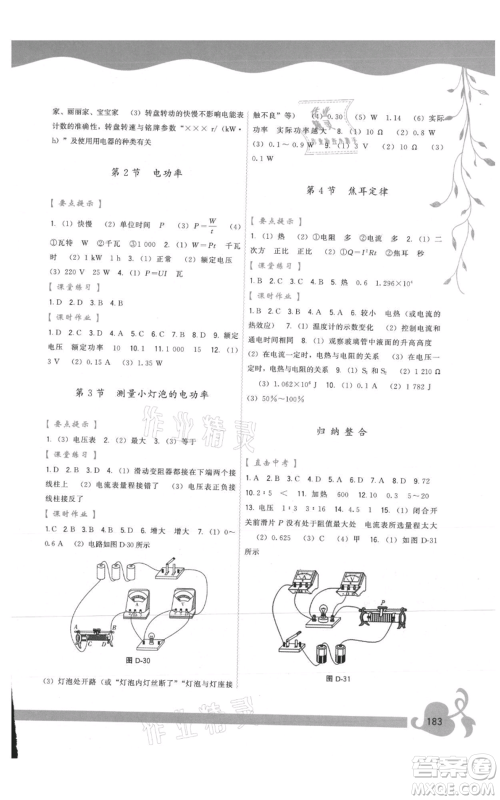 家、丽丽家、宝宝家　(3) 转盘转动的快慢不影响电能表
计数的准确性，转盘转速与铭牌参数“×××r/(kW·
h)”及使用用电器的种类有关
第2节　电功率
【要点提示】
1. (1) 快慢　(2) 单位时间　P　(3) P=W/t　(4)
①瓦特　W　②千瓦　③1 000　2. (1) W=Pt　千瓦
时　(2) 1 kW　1 h　3. (1) 正常　(2) 额定电压
(3) 220 V　25 W　4. (1) P=UI　UI
【课堂练习】
1. D　2. D
【课时作业】
1. D　2. C　3. D　4. A　5. D　6. B　7. C　8. D　9. 额定
电压　额定功率　10. 30　11. 10　12. 4∶1　13. (1)
OA　(2) 0.15 A　(3) 1.35 W
第3节　测量小灯泡的电功率
【要点提示】
1. (3) 电压表　2. (2) 最大　3. (3) 等于
【课堂练习】
1. D　2. B　3. C　4. (1) 滑动变阻器都接在下端两个接
线柱上　(2) 电流表量程接错了　(3) 电压表正负接线
柱接反了
【课时作业】
1. C　2. A　3. D　4. C　5. B　6. 增大　增大　7. (1) 0~
0.6 A　(2) 电路如图 D-30 所示
图 D-30
(3) 灯泡处开路（或“灯泡内灯丝断了”“灯泡与灯座接
触不良”等）　(4) 0.30　(5) W　1.14　(6) 实际
功率　实际功率越大　8. (1) 10 Ω　(2) 0.8 W
(3) 0.1~0.9 W　9. (1) 10 Ω　(2) 0.4 W　(3)
0.1 W
第4节　焦耳定律
【要点提示】
1. (1) 热　(2) 热　2. (2) ①电阻　多　②电流　多　③时间　多　3. (1)
二次方　正比　正比　(2) ①Q=I²Rt　②焦耳　秒
【课堂练习】
1. B　2. C　3. D　4. D　5. 热　0.6　1.296×10⁴
【课时作业】
1. D　2. A　3. D　4. A　5. A　6. 较小　电热（或电流的
热效应）　7. (1) 温度计的示数变化　(2) 控制电流和
通电时间相同　8. (1) 观察玻璃管中液面的升高高度
(2) 在电流一定时，电热与电阻的关系　(3) 在电阻一
定时，电热与电流的关系　9. (1) S₁和S₂　(2) 1 210 Ω
(3) 1.062×10⁴ J　(4) 0.81 W
归纳整合
【直击中考】
1. D　2. C　3. B　4. A　5. C　6. A　7. D　8. D　9. 72
10. 2∶5　＜　11. 加热　4 400　12. 0.3　0~5.4
13. 4　1∶2　14. 36　12　12　15. (1) 闭合开
关前滑片 P 没有处于阻值最大处　电流表量程太大了
(2) 0.625　(3) C　(4) 43　16. (1) 如图 D-31
所示
图 D-31
183
作业精灵
作业精灵